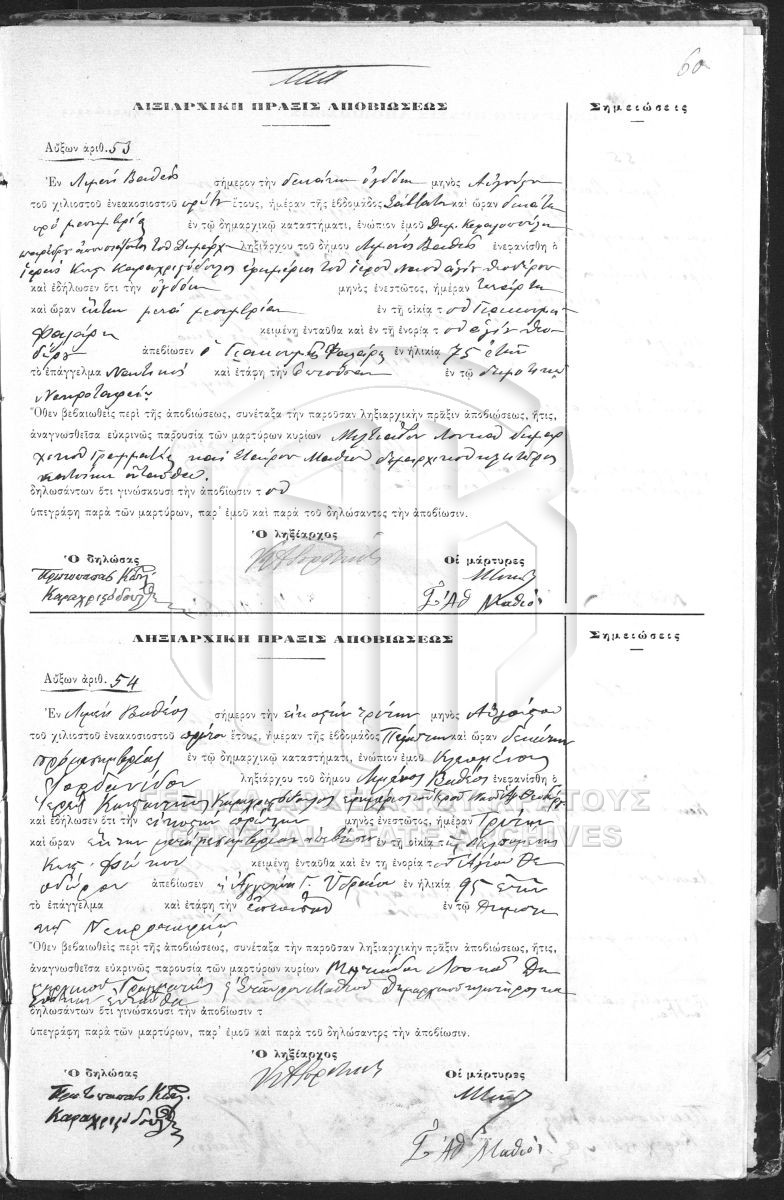 60
ΛΗΞΙΑΡΧΙΚΗ ΠΡΑΞΙΣ ΑΠΟΒΙΩΣΕΩΣ
Σημειώσεις
Αὔξων ἀριθ. 53
Ἐν Λιμένι Βαθέος σήμερον τὴν δεκάτην ὀγδόην μηνὸς Αὐγούστου
τοῦ χιλιοστοῦ ἐνεακοσιοστοῦ πρώτου ἔτους, ἡμέραν τῆς ἑβδομάδος Σάββατον καὶ ὥραν δεκάτην
πρὸ μεσημβρίας ἐν τῷ δημαρχικῷ καταστήματι, ἐνώπιον ἐμοῦ Δημ.
παρέδρου ἀπουσιάζοντος τοῦ Δημάρχου ληξιάρχου τοῦ δήμου Λιμένος Βαθέος ἐνεφανίσθη ὁ
ἱερεὺς Κωνστ. Καραχριζόδουλος ἐφημέριος τοῦ ἱεροῦ Ναοῦ ἁγίου Θεοδώρου
καὶ ἐδήλωσεν ὅτι τὴν ὀγδόην μηνὸς ἐνεστῶτος, ἡμέραν τετάρτην
καὶ ὥραν ἕκτην μετὰ μεσημβρίαν ἐν τῇ οἰκίᾳ τοῦ Γιακουμῆ
κειμένῃ ἐνταῦθα καὶ ἐν τῇ ἐνορίᾳ τοῦ ἁγίου Θεο-
δώρου ἀπεβίωσεν ὁ Γιακουμῆς ἐν ἡλικίᾳ 75 ἐτῶν
τὸ ἐπάγγελμα Ναυτικὸς καὶ ἐτάφη τὴν ἐπιοῦσαν ἐν τῷ δημοτικῷ
Νεκροταφείῳ
Ὅθεν βεβαιωθεὶς περὶ τῆς ἀποβιώσεως, συνέταξα τὴν παροῦσαν ληξιαρχικὴν πρᾶξιν ἀποβιώσεως, ἥτις,
ἀναγνωσθεῖσα εὐκρινῶς παρουσίᾳ τῶν μαρτύρων κυρίων Μιλτιάδου Λουκᾶ δημαρ
χιακοῦ Γραμματέως καὶ Σταύρου Μαθιοῦ δημαρχιακοῦ κλητῆρος
κατοίκων ἐνταῦθα.
δηλωσάντων ὅτι γινώσκουσι τὴν ἀποβίωσιν τοῦ
ὑπεγράφη παρὰ τῶν μαρτύρων, παρ' ἐμοῦ καὶ παρὰ τοῦ δηλώσαντος τὴν ἀποβίωσιν.
Ὁ ληξίαρχος
Ὁ δηλώσας
Οἱ μάρτυρες
Πρωτοπαπᾶς Κωνστ.
Καραχριζόδουλος
Σ Ἀθ Μαθιός
ΛΗΞΙΑΡΧΙΚΗ ΠΡΑΞΙΣ ΑΠΟΒΙΩΣΕΩΣ
Σημειώσεις
Αὔξων ἀριθ. 54
Ἐν Λιμένι Βαθέος σήμερον τὴν εἰκοστὴν τρίτην μηνὸς Αὐγούστου
τοῦ χιλιοστοῦ ἐνεακοσιοστοῦ πρώτου ἔτους, ἡμέραν τῆς ἑβδομάδος Πέμπτην καὶ ὥραν δεκάτην
πρὸ μεσημβρίας ἐν τῷ δημαρχικῷ καταστήματι, ἐνώπιον ἐμοῦ Κλεομένους
Ἰορδανίδου ληξιάρχου τοῦ δήμου Λιμένος Βαθέος ἐνεφανίσθη ὁ
Ἱερεὺς Κωνσταντῖνος Καραχριζόδουλος ἐφημέριος τοῦ Ἱεροῦ Ναοῦ Ἁγ. Θεοδώρου
καὶ ἐδήλωσεν ὅτι τὴν εἰκοστὴν πρώτην μηνὸς ἐνεστῶτος, ἡμέραν Τρίτην
καὶ ὥραν ἕκτην μετὰ μεσημβρίαν ἐν τῇ οἰκίᾳ τῆς
κειμένῃ ἐνταῦθα καὶ ἐν τῇ ἐνορίᾳ τοῦ Ἁγίου Θε
οδώρου ἀπεβίωσεν ἡ Γ. Ὑδραίου ἐν ἡλικίᾳ 95 ἐτῶν
τὸ ἐπάγγελμα καὶ ἐτάφη τὴν ἐπιοῦσαν ἐν τῷ Δημοτι
κῷ Νεκροταφείῳ
Ὅθεν βεβαιωθεὶς περὶ τῆς ἀποβιώσεως, συνέταξα τὴν παροῦσαν ληξιαρχικὴν πρᾶξιν ἀποβιώσεως, ἥτις,
ἀναγνωσθεῖσα εὐκρινῶς παρουσίᾳ τῶν μαρτύρων κυρίων Μιλτιάδου Λουκᾶ Δη
μαρχιακοῦ Γραμματέως καὶ Σταύρου Μαθιοῦ Δημαρχιακοῦ κλητῆρος κα
τοίκων ἐνταῦθα
δηλωσάντων ὅτι γινώσκουσι τὴν ἀποβίωσιν τ
ὑπεγράφη παρὰ τῶν μαρτύρων, παρ' ἐμοῦ καὶ παρὰ τοῦ δηλώσαντος τὴν ἀποβίωσιν.
Ὁ ληξίαρχος
Ὁ δηλώσας
Οἱ μάρτυρες
Πρωτοπαπᾶς Κωνστ.
Καραχριζόδουλος
Σ Ἀθ Μαθιός
ΓΕΝΙΚΑ ΑΡΧΕΙΑ ΤΟΥ ΚΡΑΤΟΥΣ
GENERAL STATE ARCHIVES